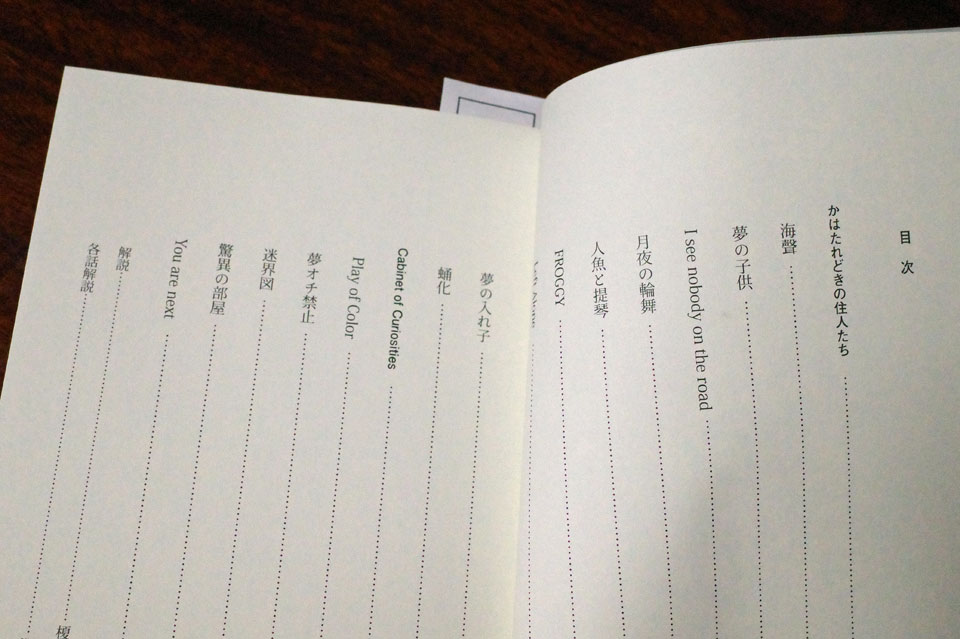 目次
かはたれどきの住人たち
海聲
夢の子供
I see nobody on the road
月夜の輪舞
人魚と提琴
FROGGY
夢の入れ子
蛹化
Cabinet of Curiosities
Play of Color
夢オチ禁止
迷界図
驚異の部屋
You are next
解説
榎
各話解説